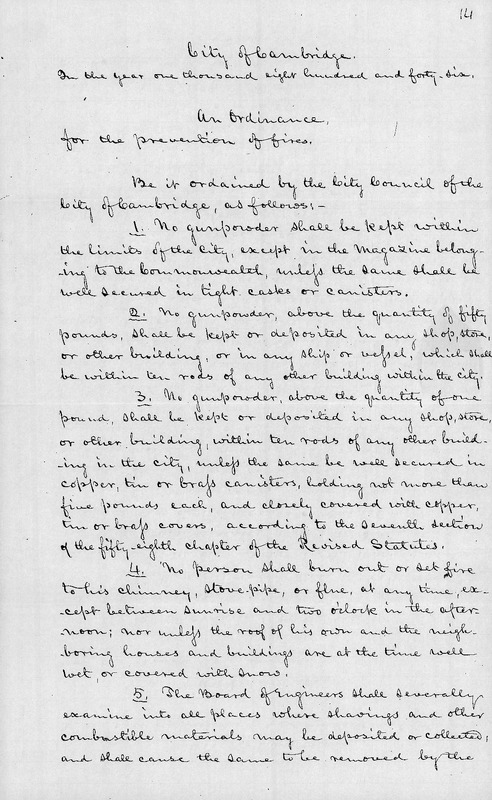 141
City of Cambridge.
In the year one thousand eight hundred and forty-six.
An Ordinance,
for the prevention of fires.
Be it ordained by the City Council of the
City of Cambridge, as follows; -
1. No gunpowder shall be kept within
the limits of the City, except in the Magazine belong-
-ing to the Commonwealth, unless the same shall be
well secured in tight casks or canisters.
2. No gunpowder, above the quantity of fifty
pounds, shall be kept or deposited in any shop, store,
or other building, or in any ship or vessel, which shall
be within ten rods of any other building within the city.
3. No gunpowder, above the quantity of one
pound, shall be kept or deposited in any shop, store,
or other building, within ten rods of any other build-
-ing in the city, unless the same be well secured in
copper, tin or brass canisters, holding not more than
five pounds each, and closely covered with copper,
tin or brass covers, according to the seventh section
of the fifty-eighth chapter of the Revised Statutes.
4. No person shall burn out or set fire
to his chimney, stove-pipe, or flue, at any time, ex-
-cept between sunrise and two o'clock in the after-
noon; nor unless the roof of his own and the neigh-
-boring houses and buildings are at the time well
wet or covered with snow.
5. The Board of Engineers shall severally
examine into all places where shavings and other
combustible materials may be deposited or collected;
and shall cause the same to be removed by the